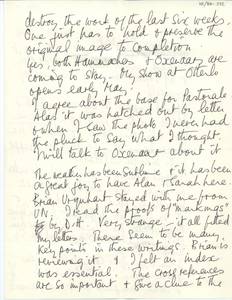 destroy the work of the last six weeks.
One just has to hold & preserve the
original image to completion
Yes, both Hammachers & Oxenaars are
coming to stay. My show at Otterlo
opens early May.
I agree about the base for Pastorale
Alas it was hatched out by letter
& when I saw the photo I never had
the pluck to say what I thought.
I will talk to Oxenaar about it
The weather has been sublime & it has been
a great joy to have Alan & Sarah here.
Brian Urquhart stayed with me from
UN. I read the proofs of "markings"
by D.H. Very strange - it all fitted
my letters. There seem to be many
key points in these writings. Brian is
reviewing it & I felt an index
was essential. The cross references
are so important & give a clue to the